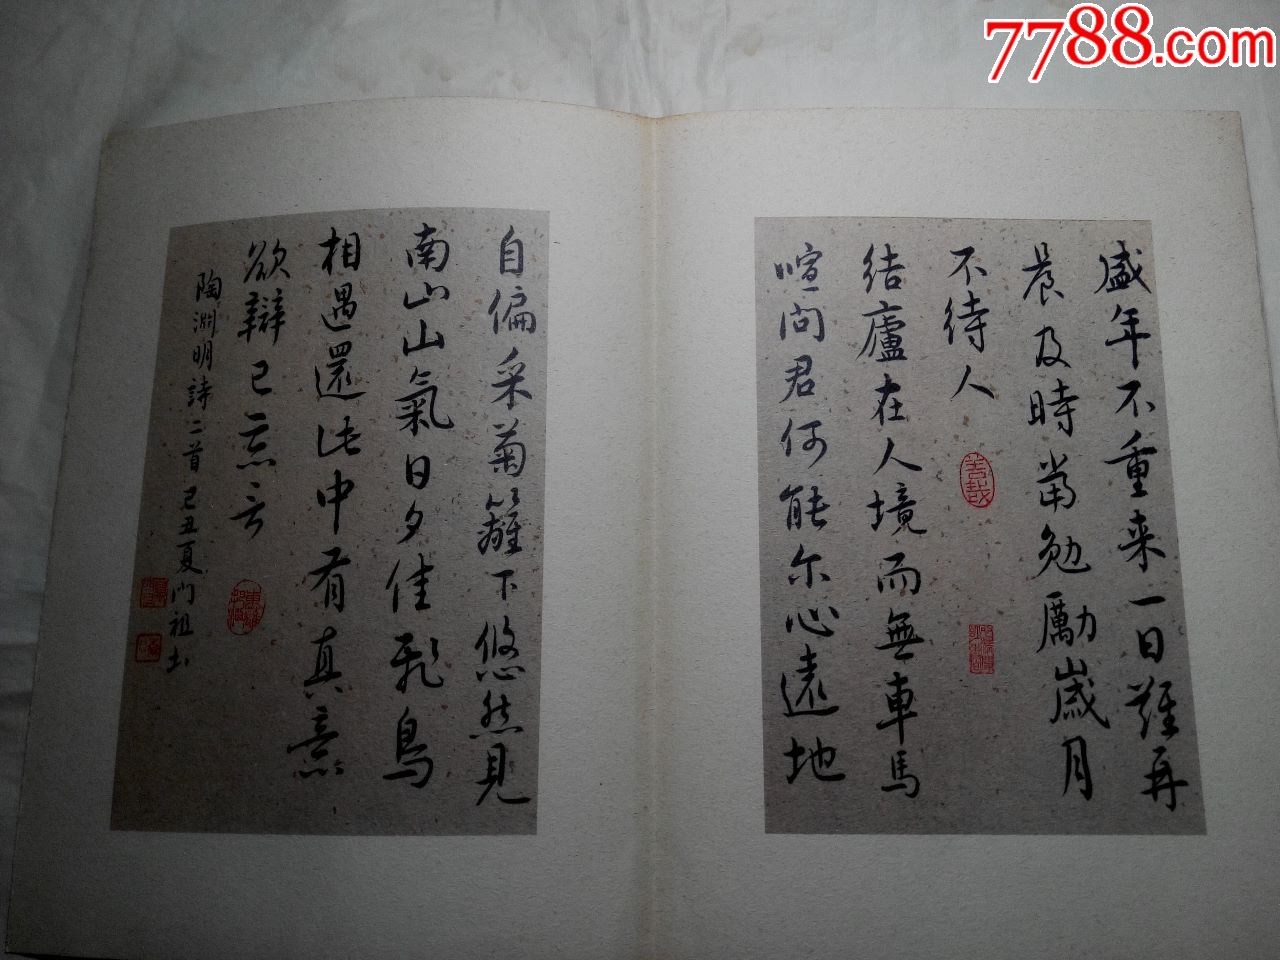 7788.com
盛年不重来一日難再
晨及時當勉勵歲月
不待人
善哉
結廬在人境而無車馬
喧问君何能尔心遠地
自偏采菊籬下悠然見
南山山氣日夕佳飛鳥
相遇還此中有真意
欲辯已忘言
陶淵明詩二首己丑夏门祖书